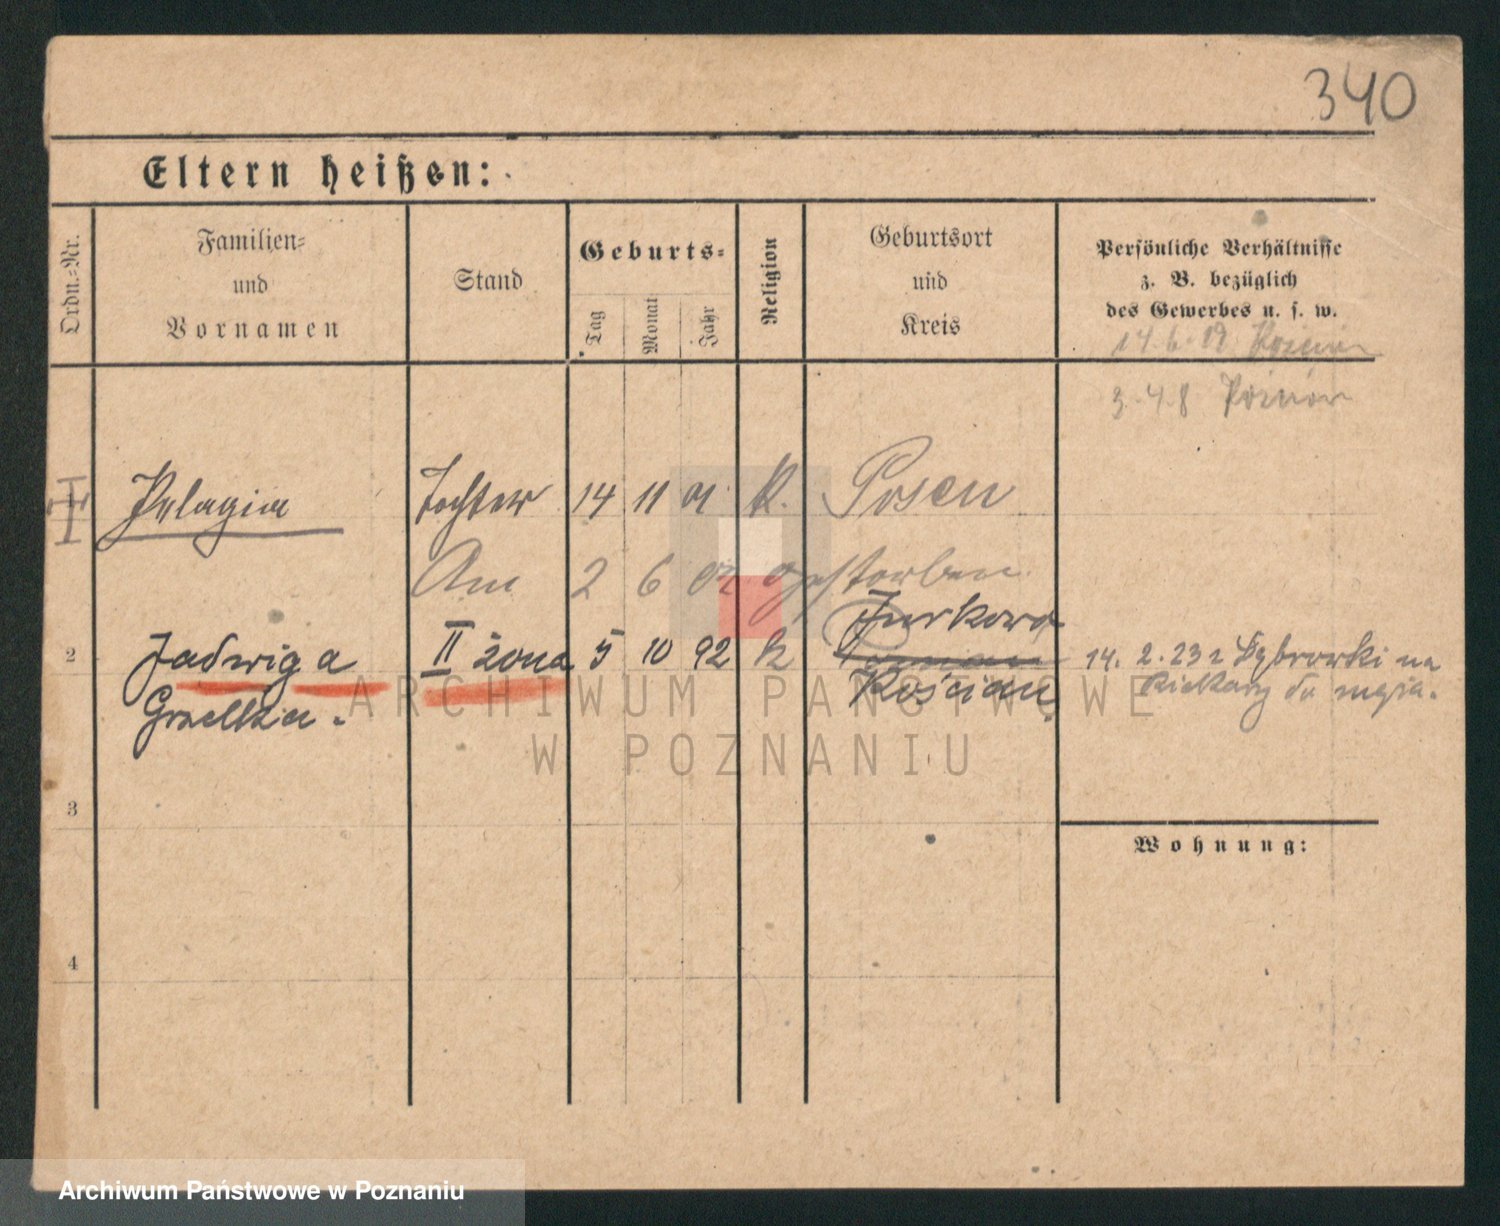 340
Eltern heißen:
Ordn.-Nr.
Familien-
und
Vornamen
Stand
Geburts-
Tag
Monat
Jahr
Religion
Geburtsort
und
Kreis
Persönliche Verhältnisse
z. B. bezüglich
des Gewerbes u. s. w.
14. 6. 12
3. 4. 8
Pelagia Tochter 14 11 01 k. Posen
Am 2 6 02 gestorben
Jurkowo
2 Jadwiga II żona 5 10 92 k 14. 2. 23 z Dąbrowki na
Kościan
3
Wohnung:
4
ARCHIWUM PAŃSTWOWE
W POZNANIU
Archiwum Państwowe w Poznaniu